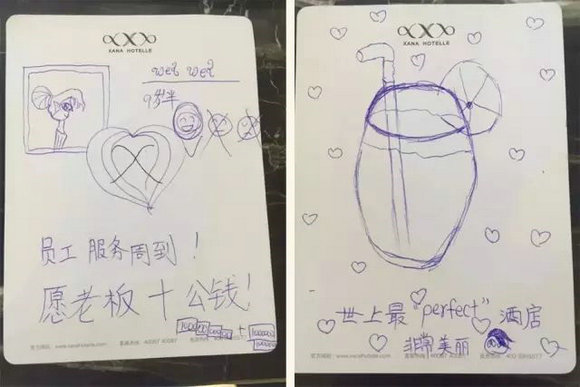 XANA HOTELLE
wei wei
9岁半
员工 服务周到！
愿老板十公钱！
XANA HOTELLE
世上最“perfect”酒店
非常美丽